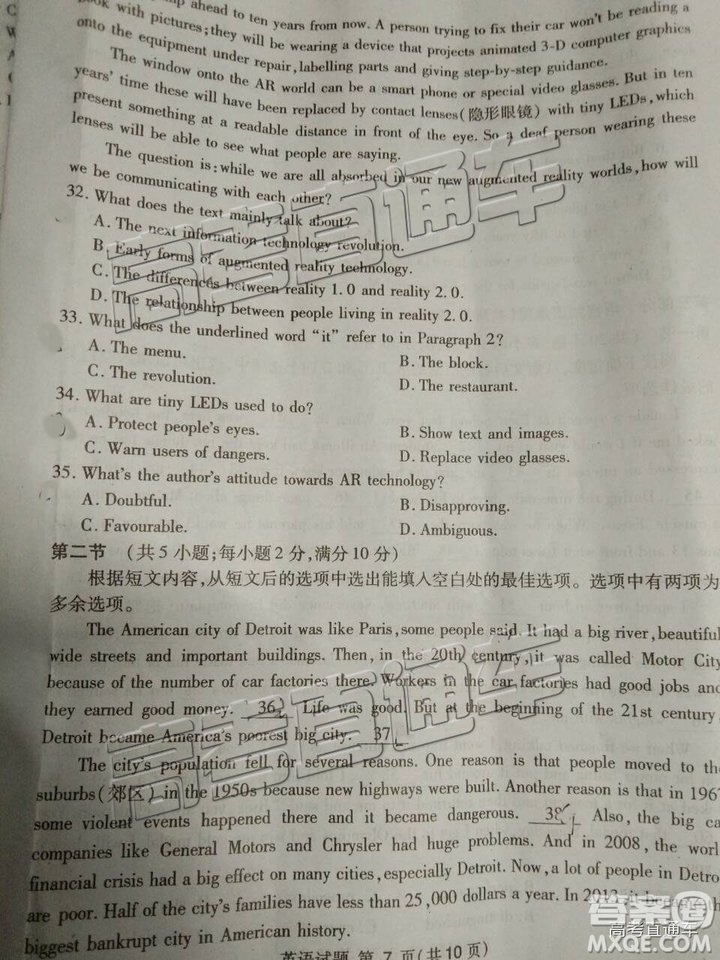 ahead to ten years from now. A person trying to fix their car won't be reading a
book with pictures; they will be wearing a device that projects animated 3-D computer graphics
onto the equipment under repair, labelling parts and giving step-by-step guidance.
The window onto the AR world can be a smart phone or special video glasses. But in ten
years' time these will have been replaced by contact lenses(隐形眼镜) with tiny LEDs, which
present something at a readable distance in front of the eye. So a deaf person wearing these
lenses will be able to see what people are saying.
The question is: while we are all absorbed in our new augmented reality worlds, how will
we be communicating with each other?
32. What does the text mainly talk about?
A. The next information technology revolution.
B. Early forms of augmented reality technology.
C. The differences between reality 1.0 and reality 2.0.
D. The relationship between people living in reality 2.0.
33. What does the underlined word "it" refer to in Paragraph 2?
A. The menu.
B. The block.
C. The revolution.
D. The restaurant.
34. What are tiny LEDs used to do?
A. Protect people's eyes.
B. Show text and images.
C. Warn users of dangers.
D. Replace video glasses.
35. What's the author's attitude towards AR technology?
A. Doubtful.
B. Disapproving.
C. Favourable.
D. Ambiguous.
第二节 (共5小题;每小题2分,满分10分)
根据短文内容,从短文后的选项中选出能填入空白处的最佳选项。选项中有两项为
多余选项。
The American city of Detroit was like Paris, some people said. It had a big river, beautiful
wide streets and important buildings. Then, in the 20th century, it was called Motor City
because of the number of car factories there. Workers in the car factories had good jobs and
they earned good money. 36 Life was good. But at the beginning of the 21st century
Detroit became America's poorest big city. 37
The city's population fell for several reasons. One reason is that people moved to the
suburbs(郊区) in the 1950s because new highways were built. Another reason is that in 196
some violent events happened there and it became dangerous. 38 Also, the big ca
companies like General Motors and Chrysler had huge problems. And in 2008, the worl
financial crisis had a big effect on many cities, especially Detroit. Now, a lot of people in Detro
are poor. Half of the city's families have less than 25,000 dollars a year. In 2013 it became the
biggest bankrupt city in American history.
英语试题 第 7 页(共10页)
高考直通车
答案圈
MXQE.COM
高考直通车